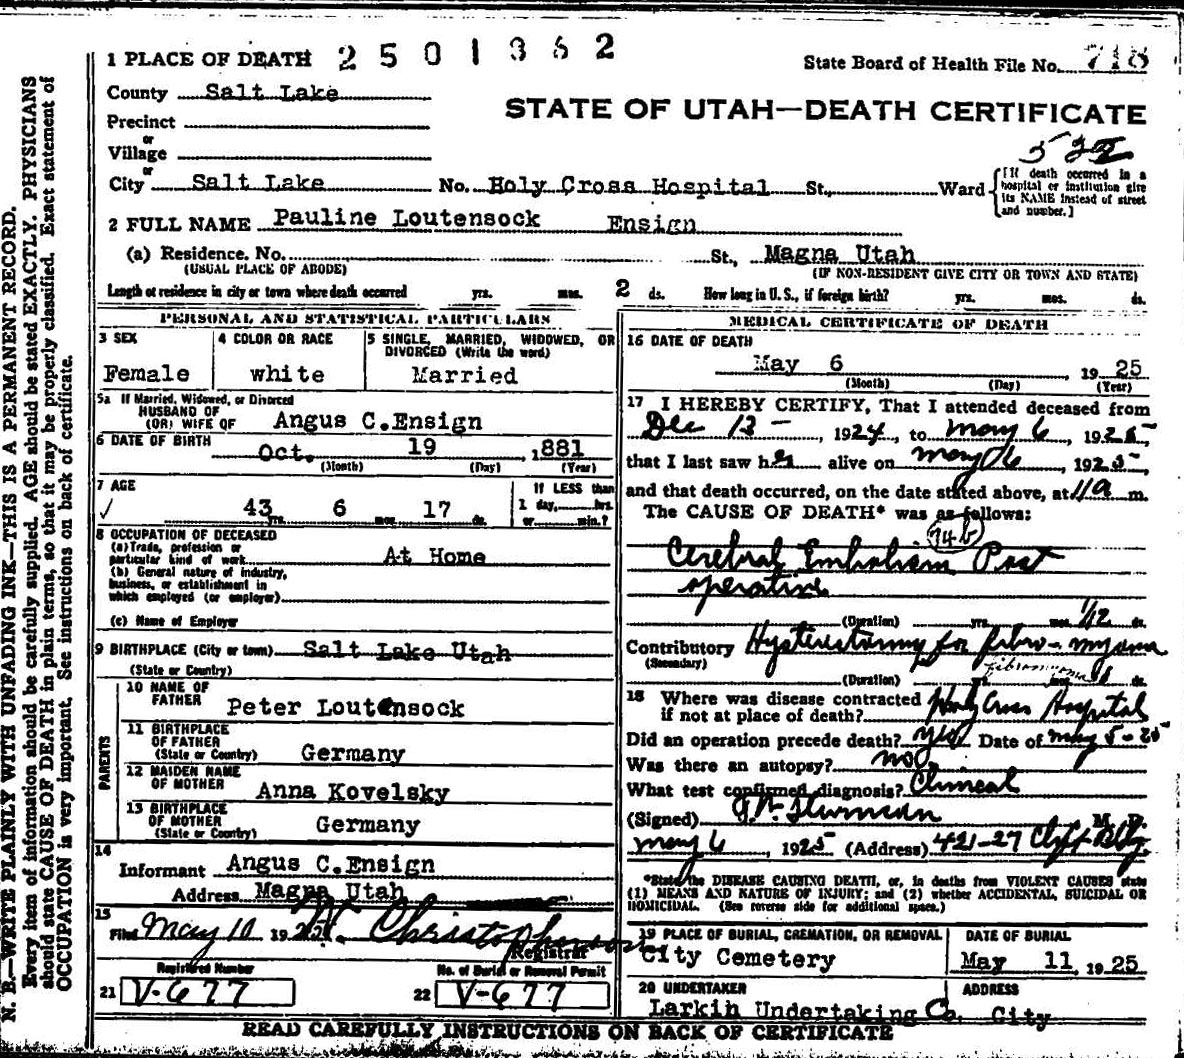 N. B.—WRITE PLAINLY WITH UNFADING INK—THIS IS A PERMANENT RECORD.
Every item of information should be carefully supplied. AGE should be stated EXACTLY. PHYSICIANS
should state CAUSE OF DEATH in plain terms, so that it may be properly classified. Exact statement of
OCCUPATION is very important. See instructions on back of certificate.
1 PLACE OF DEATH 2501362
State Board of Health File No. 718
County Salt Lake
STATE OF UTAH—DEATH CERTIFICATE
Precinct
or
Village
522
or
City Salt Lake No. Holy Cross Hospital St., Ward
[If death occurred in a
hospital or institution give
its NAME instead of street
and number.]
2 FULL NAME Pauline Loutensock Ensign
(a) Residence. No. St., Magna Utah
(USUAL PLACE OF ABODE) (IF NON-RESIDENT GIVE CITY OR TOWN AND STATE)
Length of residence in city or town where death occurred yrs. mos. 2 ds. How long in U. S., if foreign birth? yrs. mos. ds.
PERSONAL AND STATISTICAL PARTICULARS
3 SEX
Female
4 COLOR OR RACE
white
5 SINGLE, MARRIED, WIDOWED, OR
DIVORCED (Write the word)
Married
5a If Married, Widowed, or Divorced
HUSBAND OF
(OR) WIFE OF Angus C.Ensign
6 DATE OF BIRTH Oct. 19 ,1881
(Month) (Day) (Year)
7 AGE
✓ 43 yrs. 6 mos. 17 ds.
If LESS than
1 day, hrs.
or min.?
8 OCCUPATION OF DECEASED
(a) Trade, profession or
particular kind of work At Home
(b) General nature of industry,
business, or establishment in
which employed (or employer)
(c) Name of Employer
9 BIRTHPLACE (City or town) Salt Lake Utah
(State or Country)
PARENTS
10 NAME OF
FATHER Peter Loutensock
11 BIRTHPLACE
OF FATHER
(State or Country) Germany
12 MAIDEN NAME
OF MOTHER Anna Kovelsky
13 BIRTHPLACE
OF MOTHER
(State or Country) Germany
14
Informant Angus C.Ensign
Address Magna Utah
15
Filed May 10 1925 Christopherson
Registrar
Registered Number
21 V-677
No. of Burial or Removal Permit
22 V-677
MEDICAL CERTIFICATE OF DEATH
16 DATE OF DEATH
May 6 19 25
(Month) (Day) (Year)
17 I HEREBY CERTIFY, That I attended deceased from
Dec 13 - , 1924, to May 6, 1925,
that I last saw her alive on May 6, 1925,
and that death occurred, on the date stated above, at 11 a m.
The CAUSE OF DEATH* was as follows:
74b
Cerebral Embolism Post
operative
(Duration) yrs. mos. 1/2 ds.
Contributory Hysterectomy for fibro-myoma
(Secondary) fibromyoma
(Duration) yrs. mos. 1 ds.
18 Where was disease contracted
if not at place of death? Holy Cross Hospital
Did an operation precede death? yes Date of May 5-25
Was there an autopsy? no
What test confirmed diagnosis? Clinical
(Signed) M. D.
May 6, 1925 (Address) 421-27 Clift Bldg.
*State the DISEASE CAUSING DEATH, or, in deaths from VIOLENT CAUSES state
(1) MEANS AND NATURE OF INJURY; and (2) whether ACCIDENTAL, SUICIDAL OR
HOMICIDAL. (See reverse side for additional space.)
19 PLACE OF BURIAL, CREMATION, OR REMOVAL
City Cemetery
DATE OF BURIAL
May 11, 1925
20 UNDERTAKER
Larkin Undertaking Co.
ADDRESS
City
READ CAREFULLY INSTRUCTIONS ON BACK OF CERTIFICATE